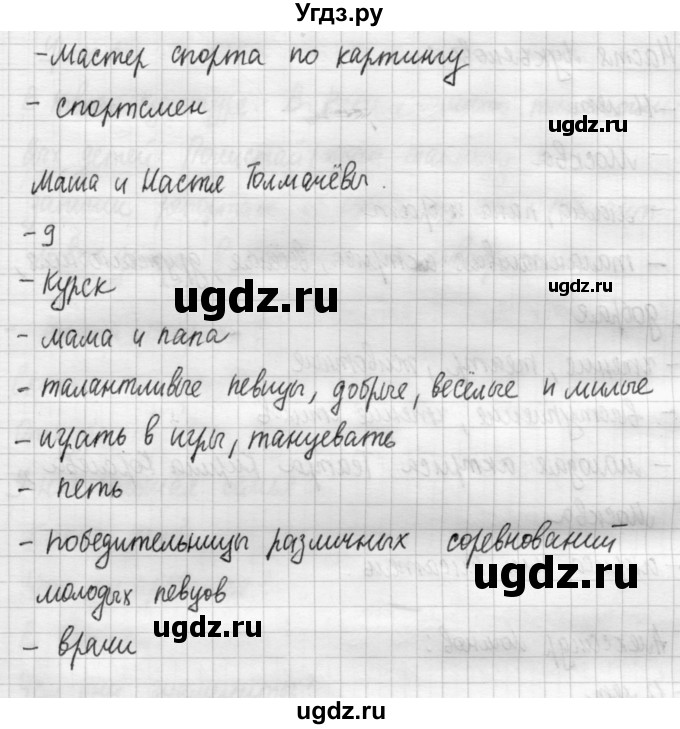 Угдз.ру
- Мастер спорта по картингу
- спортсмен
ugdz.ru
Маша и Настя Толмачёвы.
- 9
- Курск
ugdz.ru
ugdz.ru
- мама и папа
- талантливые певицы, добрые, весёлые и милые
- играть в игры, танцевать
- петь
- победительницы различных соревнований
молодых певцов
ugdz.ru
ugdz.ru
- врачи
ugdz.ru